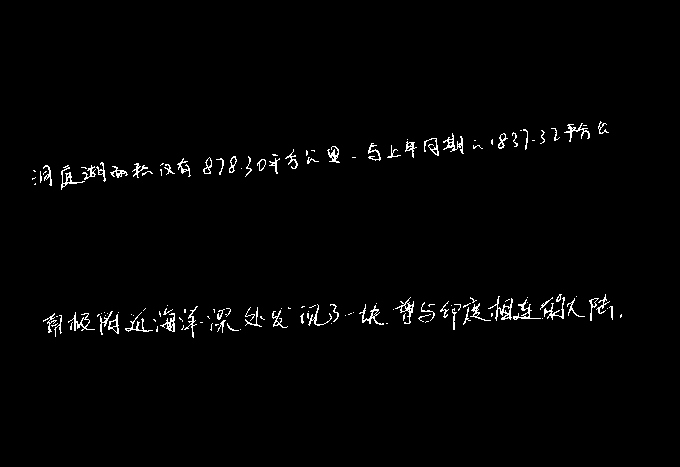 洞庭湖面积仅有878.30平方公里.与上年同期的1837.32平方公
南极附近海洋深处发现了一块曾与印度相连的大陆.